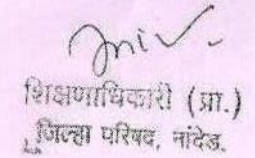 शिक्षणाधिकारी (प्रा.)
जिल्हा परिषद, नांदेड.